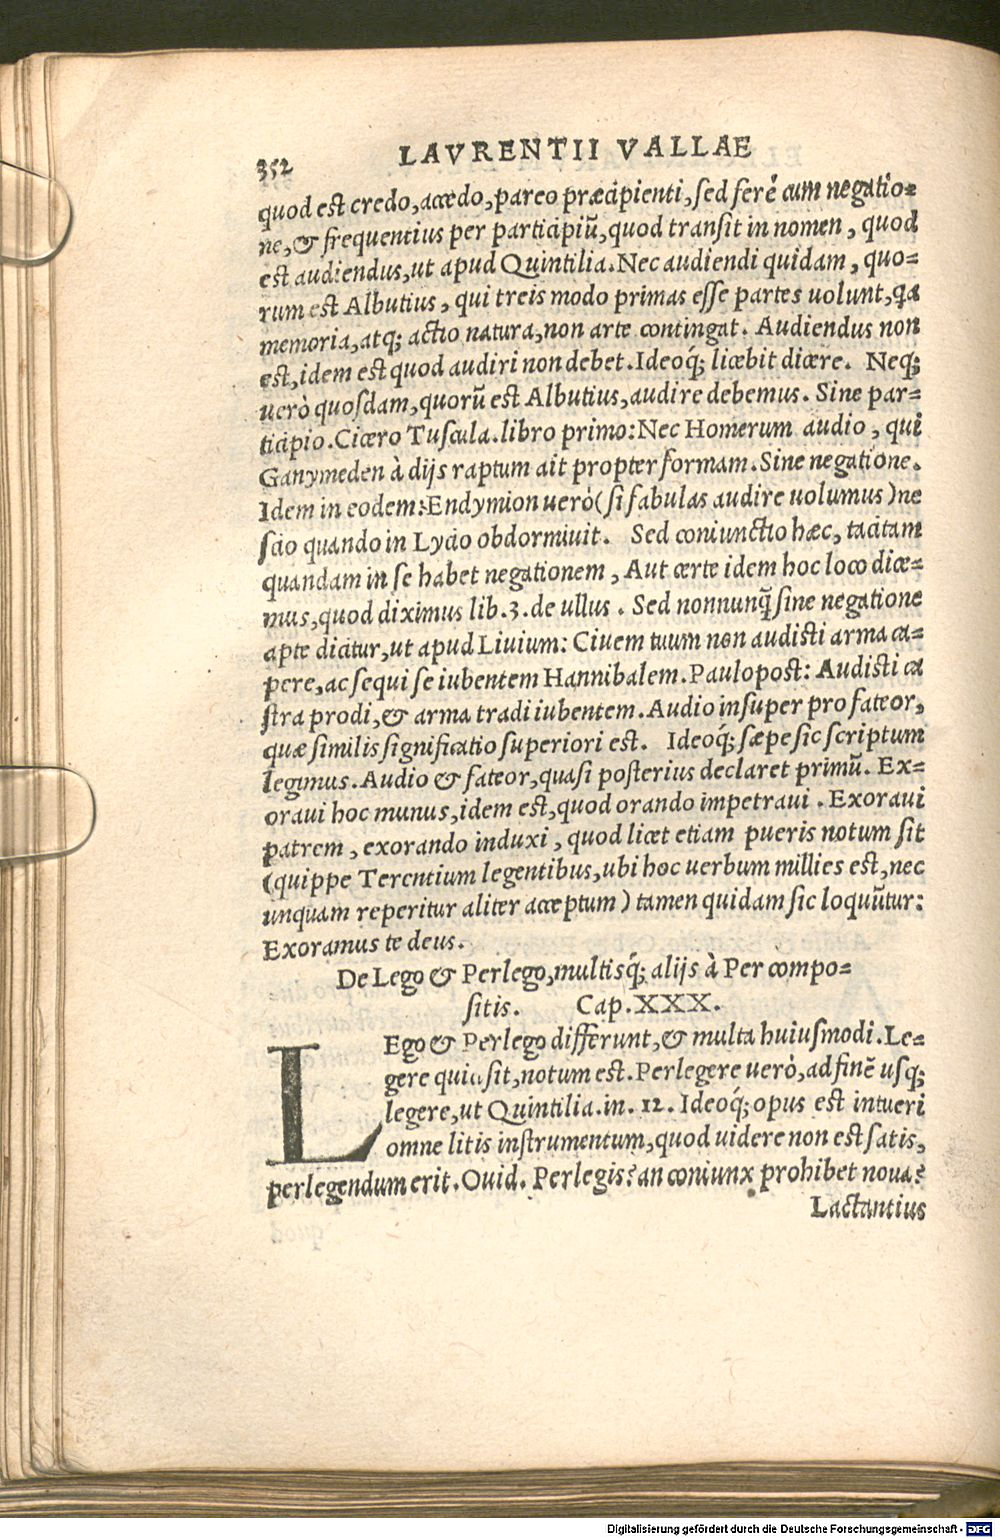 352 LAVRENTII VALLAE
quod est credo, accedo, pareo præcipienti, sed ferè cum negatio=
ne, & frequentius per participiũ, quod transit in nomen, quod
est audiendus, ut apud Quintilia. Nec audiendi quidam, quo=
rum est Albutius, qui treis modo primas esse partes uolunt, qa
memoria, atq; actio natura, non arte contingat. Audiendus non
est, idem est quod audiri non debet. Ideoq́; licebit dicere. Neq;
uerò quosdam, quorũ est Albutius, audire debemus. Sine par=
ticipio. Cicero Tuscula. libro primo: Nec Homerum audio, qui
Ganymeden à dijs raptum ait propter formam. Sine negatione.
Idem in eodem: Endymion uerò (si fabulas audire uolumus) ne
scio quando in Lycio obdormiuit. Sed coniunctio hæc, tacitam
quandam in se habet negationem, Aut certe idem hoc loco dice=
mus, quod diximus lib. 3. de ullus. Sed nonnunq̃ sine negatione
apte dicitur, ut apud Liuium: Ciuem tuum non audisti arma ca=
pere, ac sequi se iubentem Hannibalem. Paulo post: Audisti ca
stra prodi, & arma tradi iubentem. Audio insuper pro fateor,
quæ similis significatio superiori est. Ideoq́; sæpe sic scriptum
legimus. Audio & fateor, quasi posterius declaret primũ. Ex=
oraui hoc munus, idem est, quod orando impetraui. Exoraui
patrem, exorando induxi, quod licet etiam pueris notum sit
(quippe Terentium legentibus, ubi hoc uerbum millies est, nec
unquam reperitur aliter acceptum) tamen quidam sic loquũtur:
Exoramus te deus.
De Lego & Perlego, multisq́; alijs à Per compo=
sitis. Cap. XXX.
LEgo & Perlego differunt, & multa huiusmodi. Le=
gere quid sit, notum est. Perlegere uerò, ad finẽ usq;
legere, ut Quintilia. in. 12. Ideoq́; opus est intueri
omne litis instrumentum, quod uidere non est satis,
perlegendum erit. Ouid. Perlegis? an coniunx prohibet noua?
Lactantius
Digitalisierung gefördert durch die Deutsche Forschungsgemeinschaft - DFG